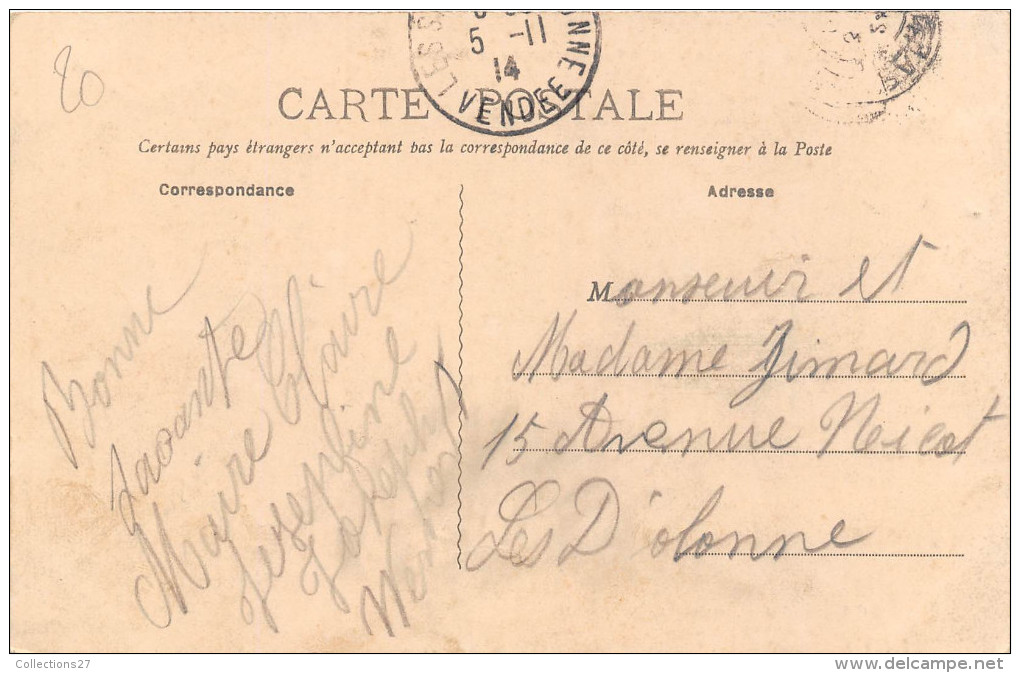 20
LES S ONNE
5 -11
14
VENDEE
CARTE POSTALE
Certains pays étrangers n'acceptant pas la correspondance de ce côté, se renseigner à la Poste
Correspondance
Adresse
Bonne
Marie Claire
Josephine
Monseuir et
Madame Jimard
15 Avenue Nicot
Les D'olonne
Collections27
http://www.delcampe.net